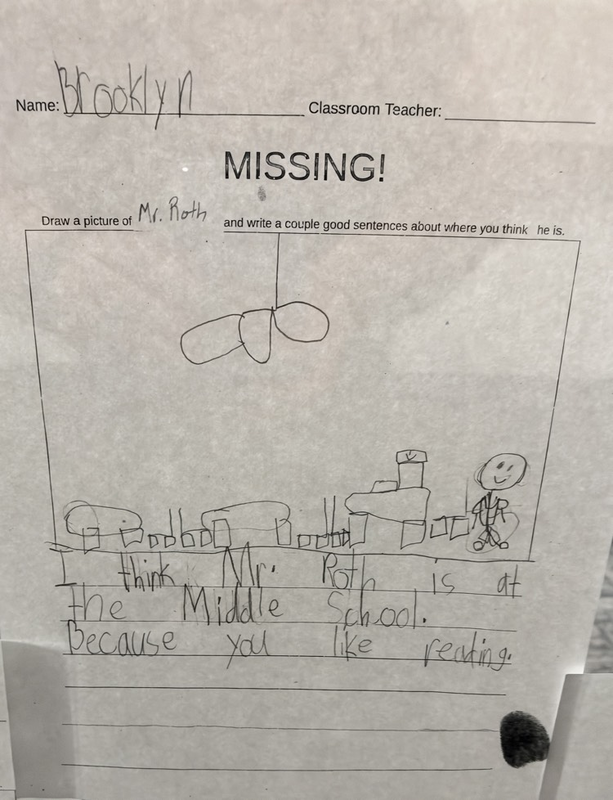 Name: Brooklyn Classroom Teacher:
MISSING!
Draw a picture of Mr. Roth and write a couple good sentences about where you think he is.
I think Mr. Roth is at
the Middle School.
Because you like reading.